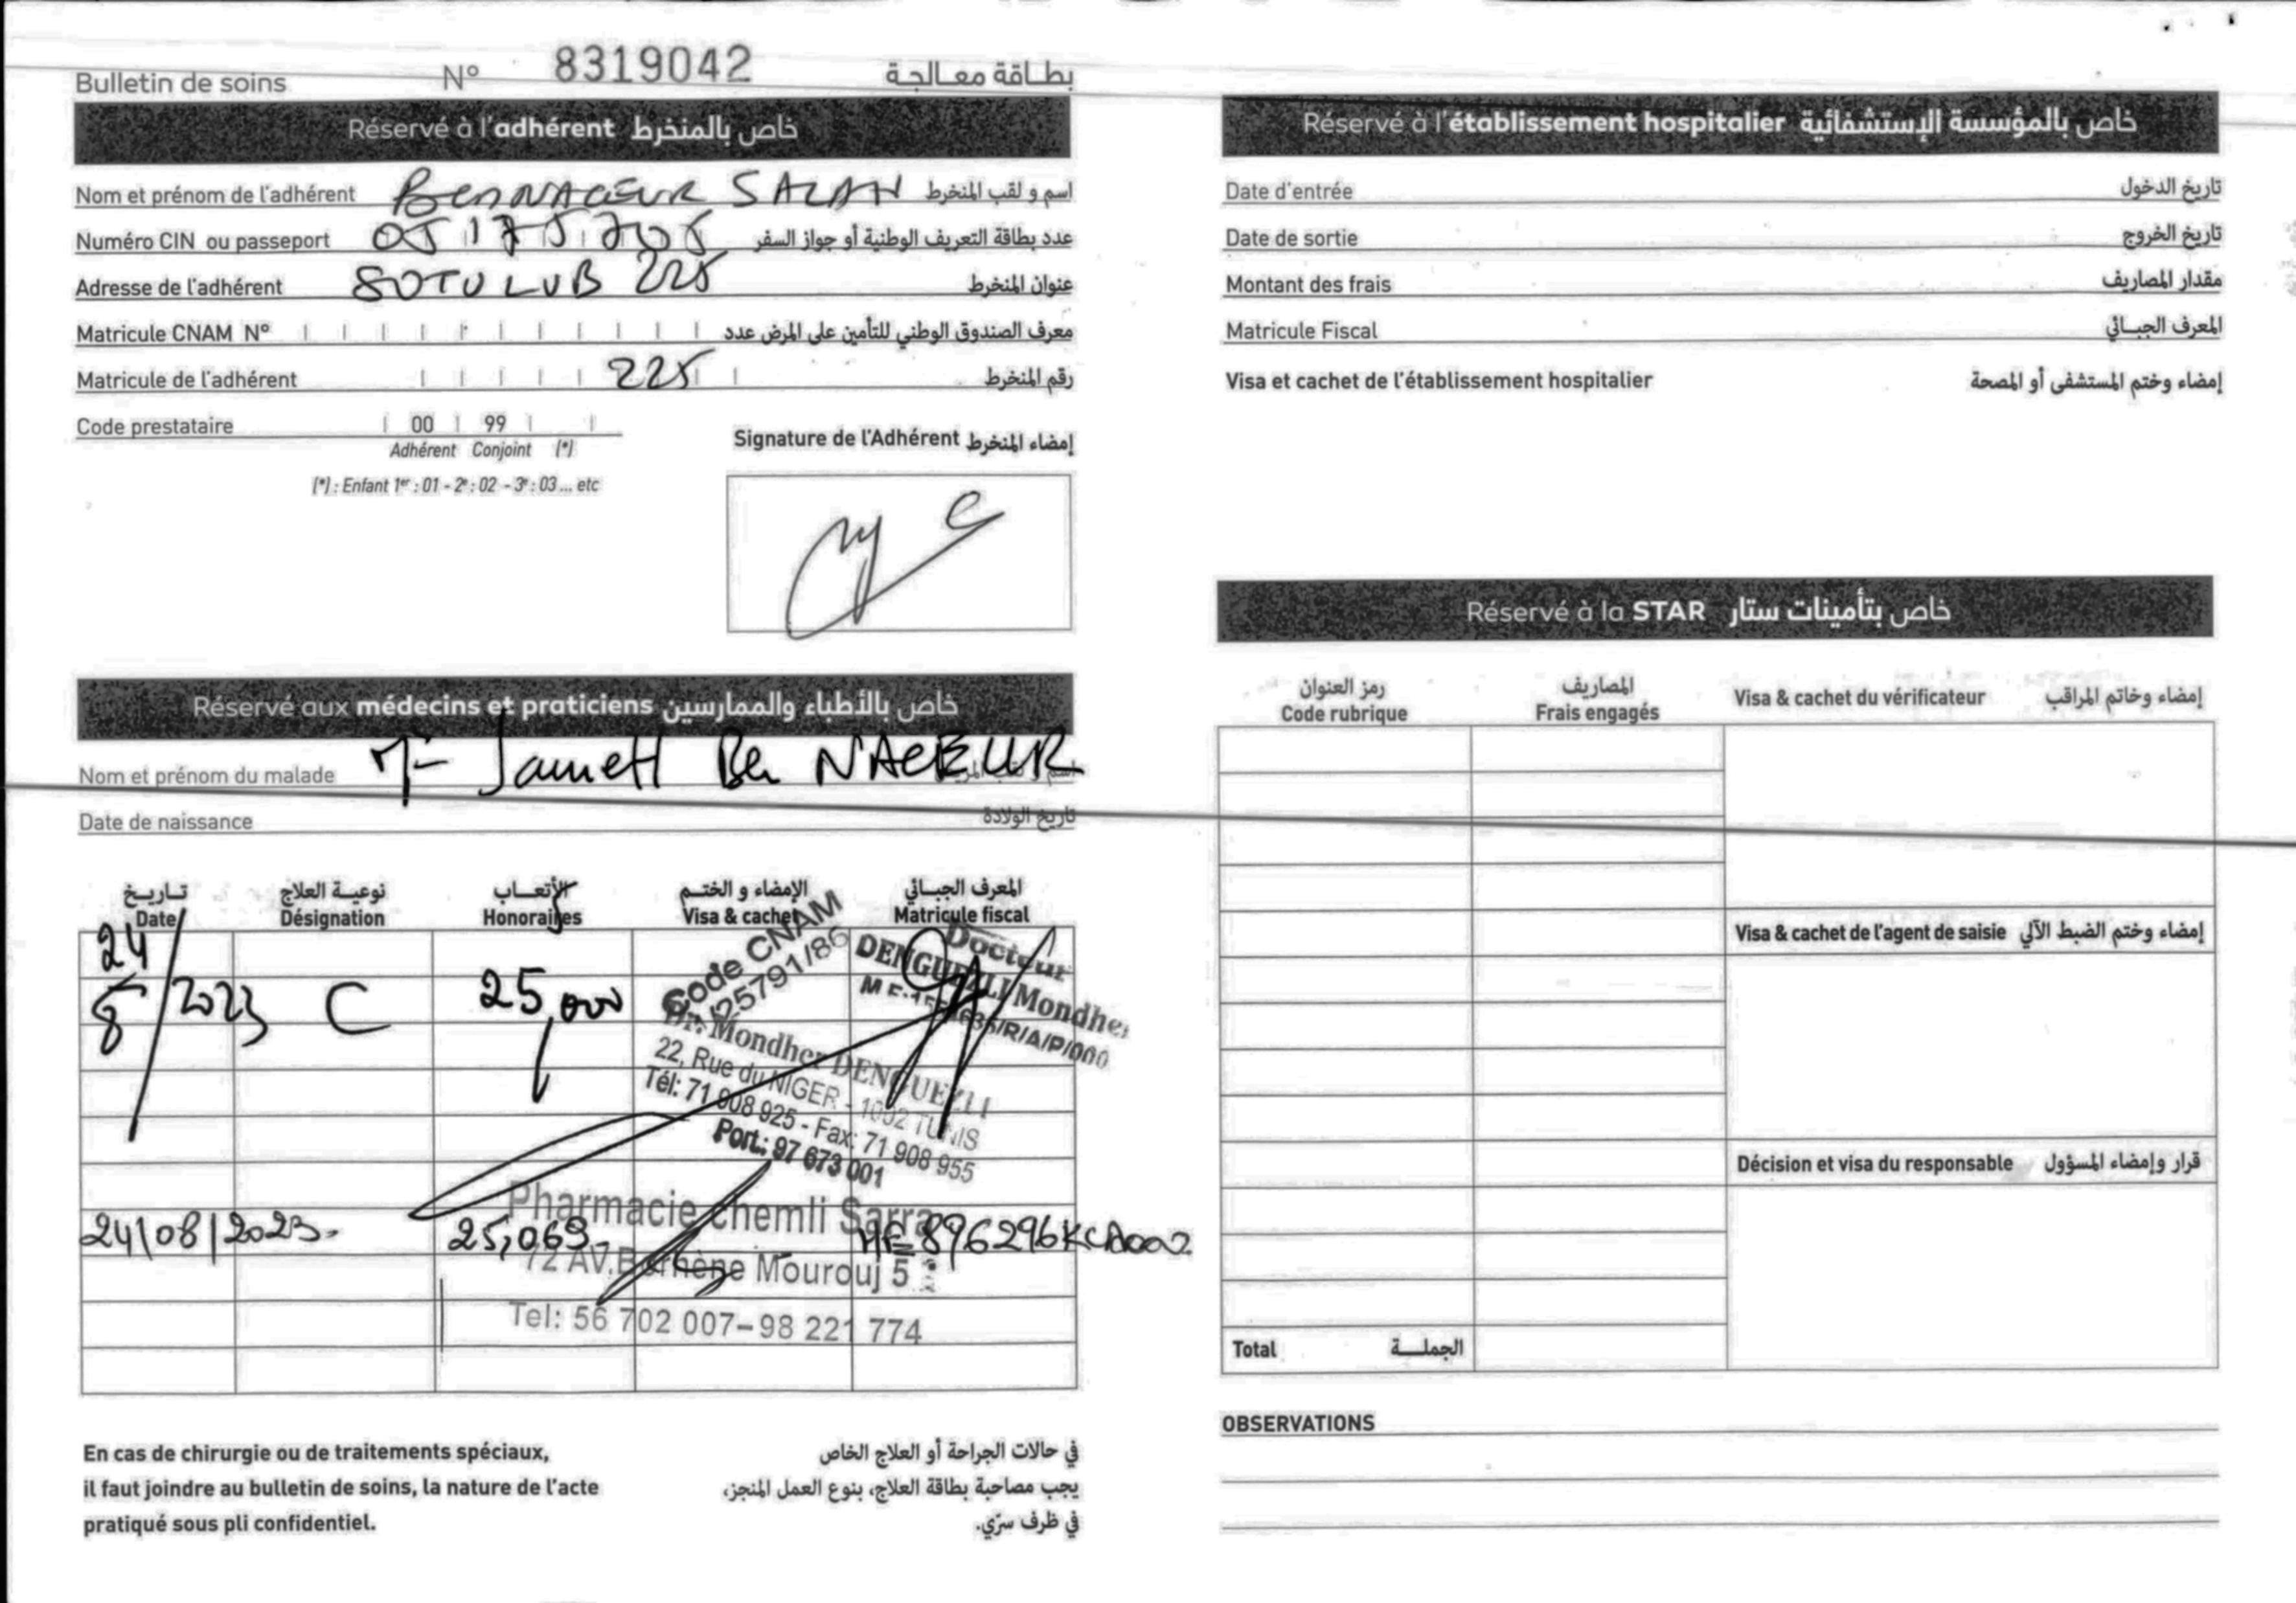 Bulletin de soins N° 8319042 بطاقة معالجة
Réservé à l'adhérent خاص بالمنخرط
Nom et prénom de l'adhérent BENNACEUR SALAH اسم و لقب المنخرط
Numéro CIN ou passeport عدد بطاقة التعريف الوطنية أو جواز السفر
Adresse de l'adhérent SOTULUB 225 عنوان المنخرط
Matricule CNAM N° معرف الصندوق الوطني للتأمين على المرض عدد
Matricule de l'adhérent 225 رقم المنخرط
Code prestataire 00 99
Adhérent Conjoint (*)
(*) : Enfant 1er : 01 - 2e : 02 - 3e : 03 ... etc
Signature de l'Adhérent إمضاء المنخرط
Réservé aux médecins et praticiens خاص بالأطباء والممارسين
Nom et prénom du malade Ben NACEUR
Date de naissance تاريخ الولادة
تاريخ نوعية العلاج الأتعاب الإمضاء و الختم المعرف الجبائي
Date Désignation Honoraires Visa & cachet Matricule fiscal
24/8/2023 C 25,000
Code CNAM
/25791/86
Docteur
DENGUEZLI Mondher
Dr. Mondher DENGUEZLI
22, Rue du NIGER - 1002 TUNIS
Tél: 71 908 925 - Fax: 71 908 955
Port.: 97 673 001
24/08/2023 25,069 MF 896296KCA002
Pharmacie Chemli Sarra
72 AV. Mourouj 5
Tel: 56 702 007-98 221 774
En cas de chirurgie ou de traitements spéciaux,
il faut joindre au bulletin de soins, la nature de l'acte
pratiqué sous pli confidentiel.
في حالات الجراحة أو العلاج الخاص
يجب مصاحبة بطاقة العلاج، بنوع العمل المنجز،
في ظرف سرّي.
Réservé à l'établissement hospitalier خاص بالمؤسسة الإستشفائية
Date d'entrée تاريخ الدخول
Date de sortie تاريخ الخروج
Montant des frais مقدار المصاريف
Matricule Fiscal المعرف الجبائي
Visa et cachet de l'établissement hospitalier إمضاء وختم المستشفى أو المصحة
Réservé à la STAR خاص بتأمينات ستار
رمز العنوان المصاريف
Code rubrique Frais engagés Visa & cachet du vérificateur إمضاء وخاتم المراقب
Visa & cachet de l'agent de saisie إمضاء وختم الضبط الآلي
Décision et visa du responsable قرار وإمضاء المسؤول
Total الجملة
OBSERVATIONS